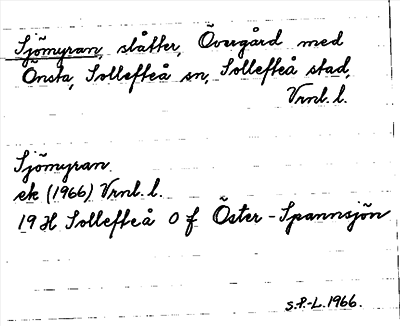 Sjömyran, slåtter, Övergård med
Önsta, Sollefteå sn, Sollefteå stad,
Vrnl. l.
Sjömyran
ek (1966) Vrnl. l.
19 H Sollefteå 0 f Öster-Spannsjön
S.P.-L. 1966.